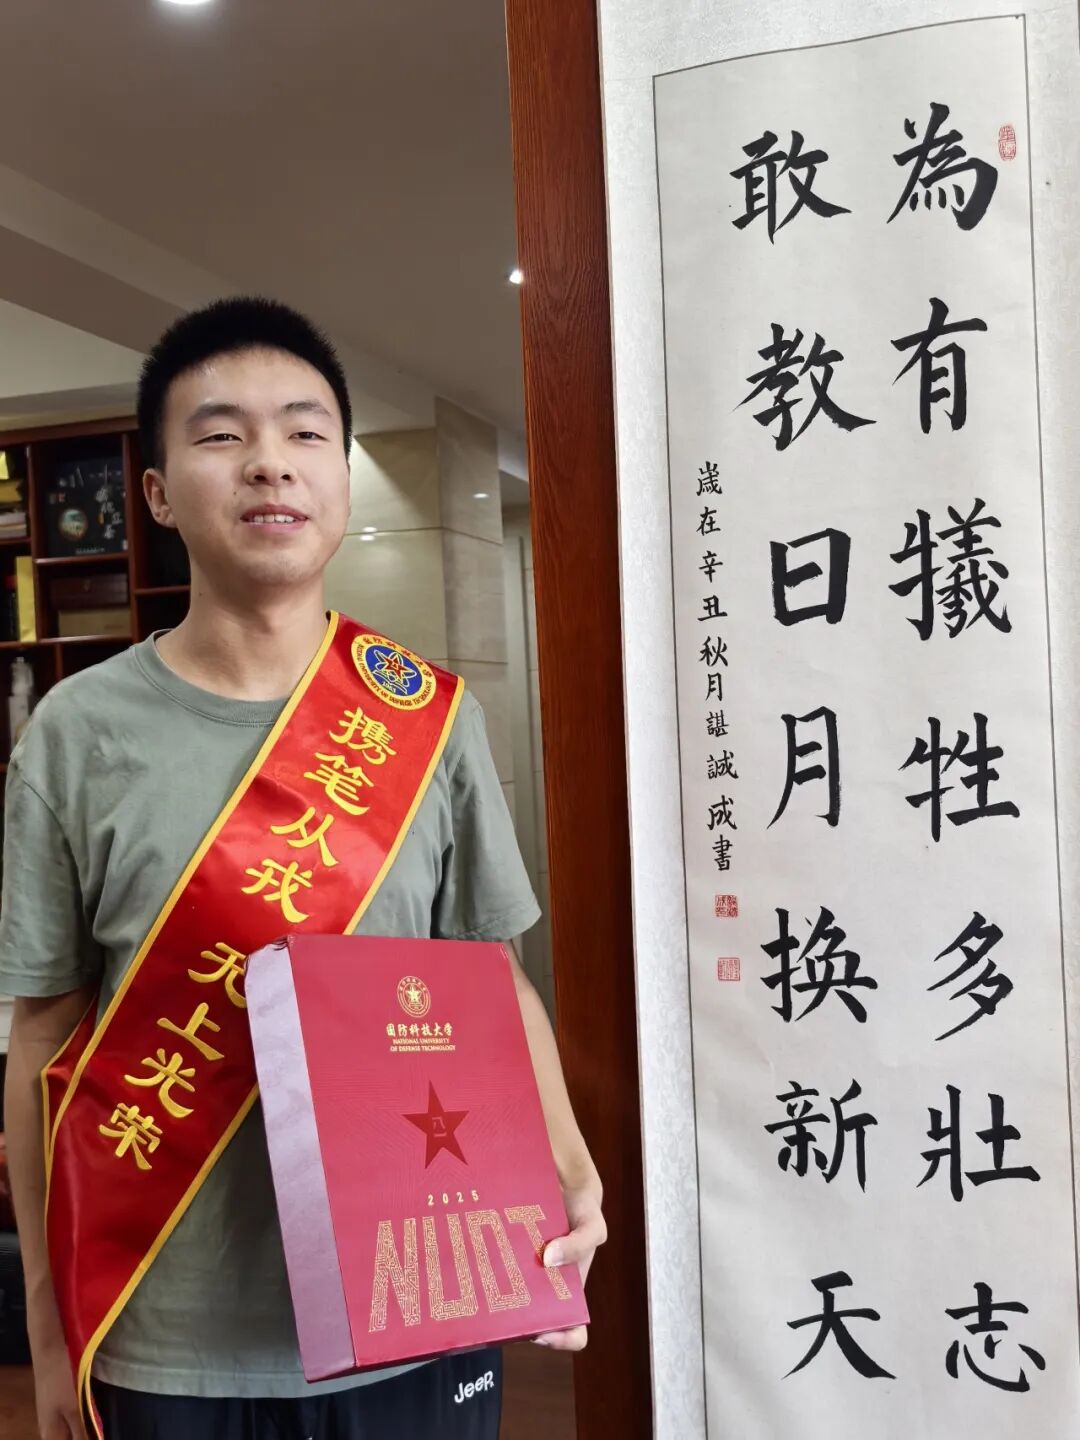 為有犧牲多壯志
敢教日月換新天
歲在辛丑秋月諶誠成書
携笔从戎 无上光荣
国防科技大学
NATIONAL UNIVERSITY
OF DEFENSE TECHNOLOGY
八一
2025
NUDT
Jeep